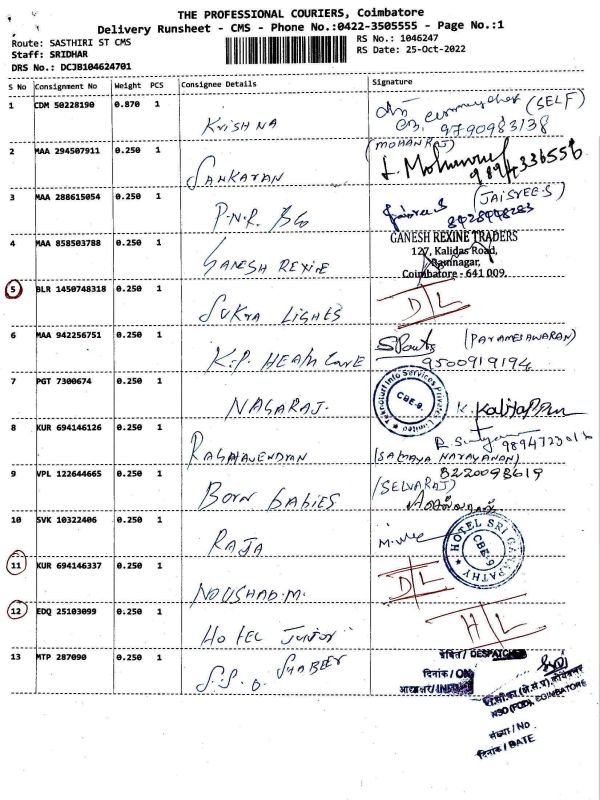 THE PROFESSIONAL COURIERS, Coimbatore
Delivery Runsheet - CMS - Phone No.:0422-3505555 - Page No.:1
Route: SASTHIRI ST CMS
RS No.: 1046247
Staff: SRIDHAR
RS Date: 25-Oct-2022
DRS No.: DCJB104624701
S No Consignment No Weight PCS Consignee Details Signature
1 CDM 50228190 0.870 1 KRISHNA
(SELF)
9790983138
2 MAA 294507911 0.250 1 SANKARAN
(MOHANRAJ)
9894336556
3 MAA 288615054 0.250 1 P.N.R. &Co
(JAISREE.S)
8428448283
4 MAA 858503788 0.250 1 GANESH REXINE
GANESH REXINE TRADERS
127, Kalidas Road,
Ramnagar,
Coimbatore - 641 009.
5 BLR 1450748318 0.250 1 SURYA LIGHTS
D/L
6 MAA 942256751 0.250 1 K.P. HEALTH CARE
(PARAMESAWARAN)
9500919194
7 PGT 7300674 0.250 1 NAGARAJ.
CBE-9.
8 KUR 694146126 0.250 1 RAGHAVENDRAN
(SATHYA NARAYANAN)
9 VPL 122644665 0.250 1 BORN BABIES
8220098619
(SELVARAJ)
10 SVK 10322406 0.250 1 RAJA
HOTEL SRI GANAPATHY
CBE-9
11 KUR 694146337 0.250 1 NOUSHAD.M.
D/L
12 EDQ 25103099 0.250 1 HOTEL JUNIOR
H/L
13 MTP 287090 0.250 1 S.S.O. SHABEER
प्रेषित/DESPATCHED
दिनांक/ON
NSO (FOD), COIMBATORE
संख्या/NO
दिनांक/DATE